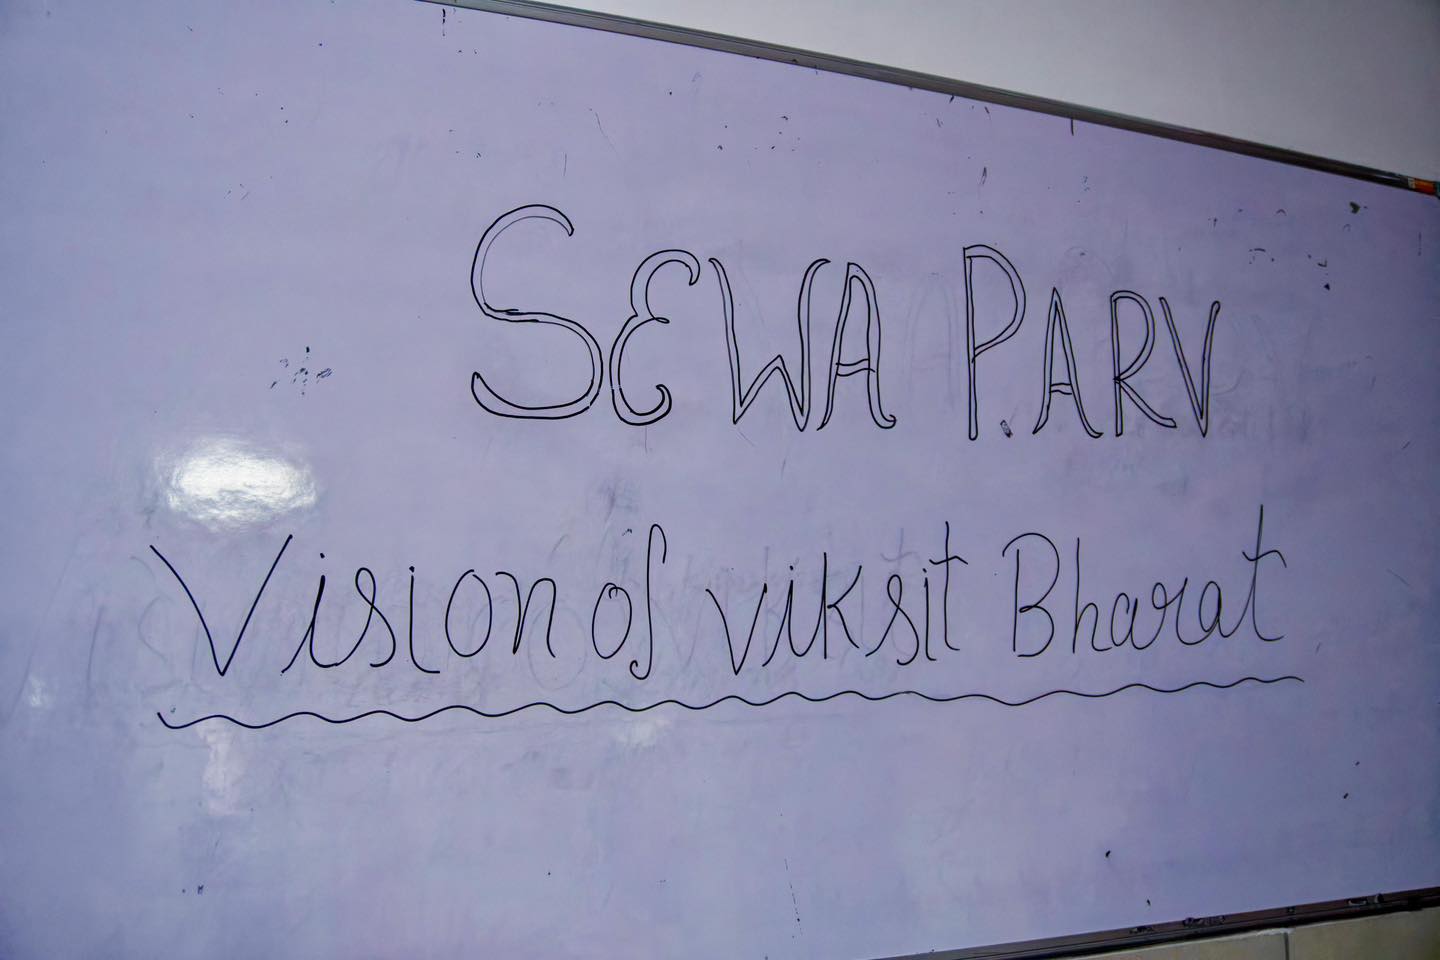 SEWA PARV
Vision of viksit Bharat